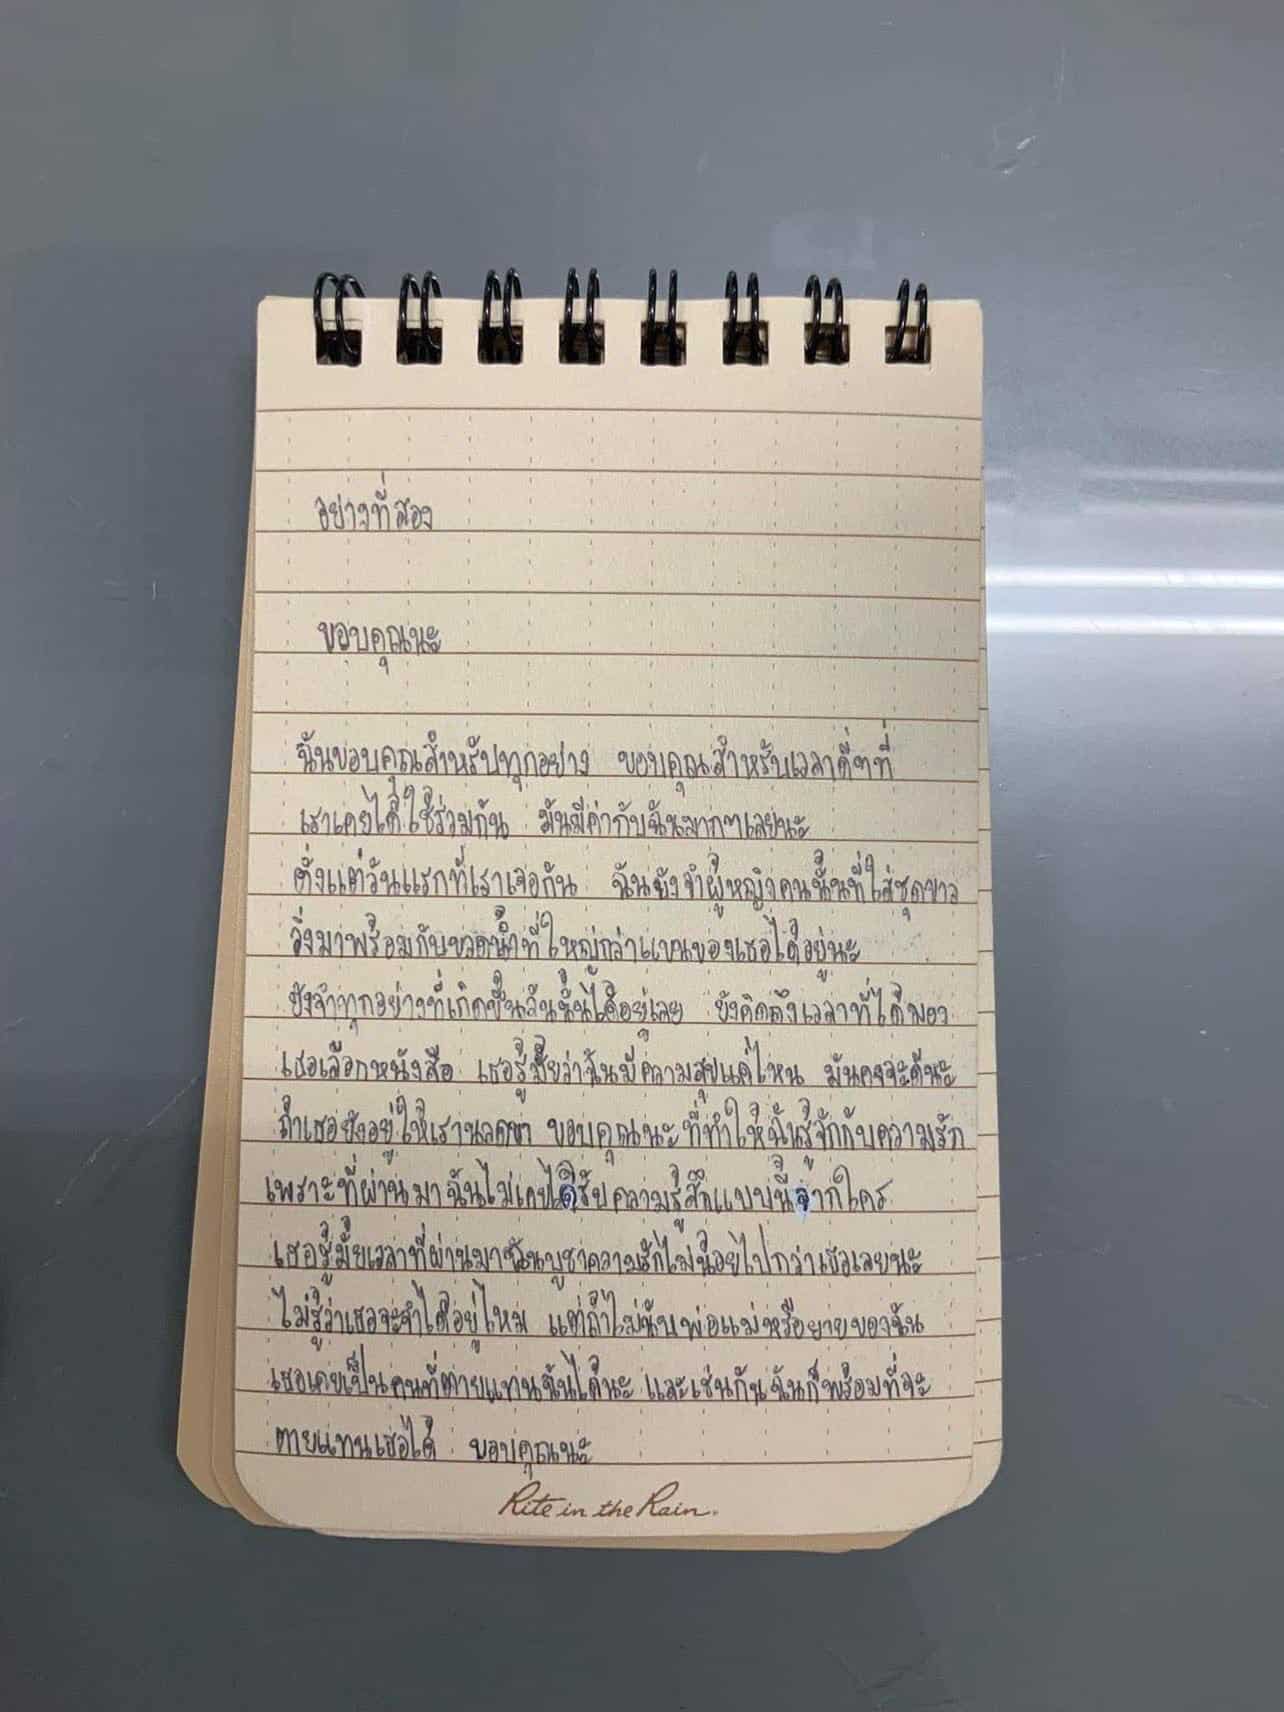 อย่างที่สอง
ขอบคุณนะ
ฉันขอบคุณสำหรับทุกอย่าง ขอบคุณสำหรับเวลาดีๆที่
เราเคยได้ใช้ร่วมกัน มันมีค่ากับฉันมากๆเลยนะ
ตั้งแต่วันแรกที่เราเจอกัน ฉันยังจำผู้หญิงคนนั้นที่ใส่ชุดขาว
วิ่งมาพร้อมกับขวดน้ำที่ใหญ่กว่าแขนของเธอได้อยู่นะ
ยังจำทุกอย่างที่เกิดขึ้นวันนั้นได้อยู่เลย ยังคิดถึงเวลาที่ได้มอง
เธอเลือกหนังสือ เธอรู้มั้ยว่าฉันมีความสุขแค่ไหน มันคงจะดีนะ
ถ้าเธอยังอยู่ให้เรานวดขา ขอบคุณนะที่ทำให้ฉันรู้จักกับความรัก
เพราะที่ผ่านมาฉันไม่เคยได้รับความรู้สึกแบบนี้จากใคร
เธอรู้มั้ยเวลาที่ผ่านมาฉันบูชาความรักไม่น้อยไปกว่าเธอเลยนะ
ไม่รู้ว่าเธอจะจำได้อยู่ไหม แต่ถ้าไม่นับพ่อแม่หรือยายของฉัน
เธอเคยเป็นคนที่ตายแทนฉันได้นะ และเช่นกันฉันก็พร้อมที่จะ
ตายแทนเธอได้ ขอบคุณนะ
Rite in the Rain.